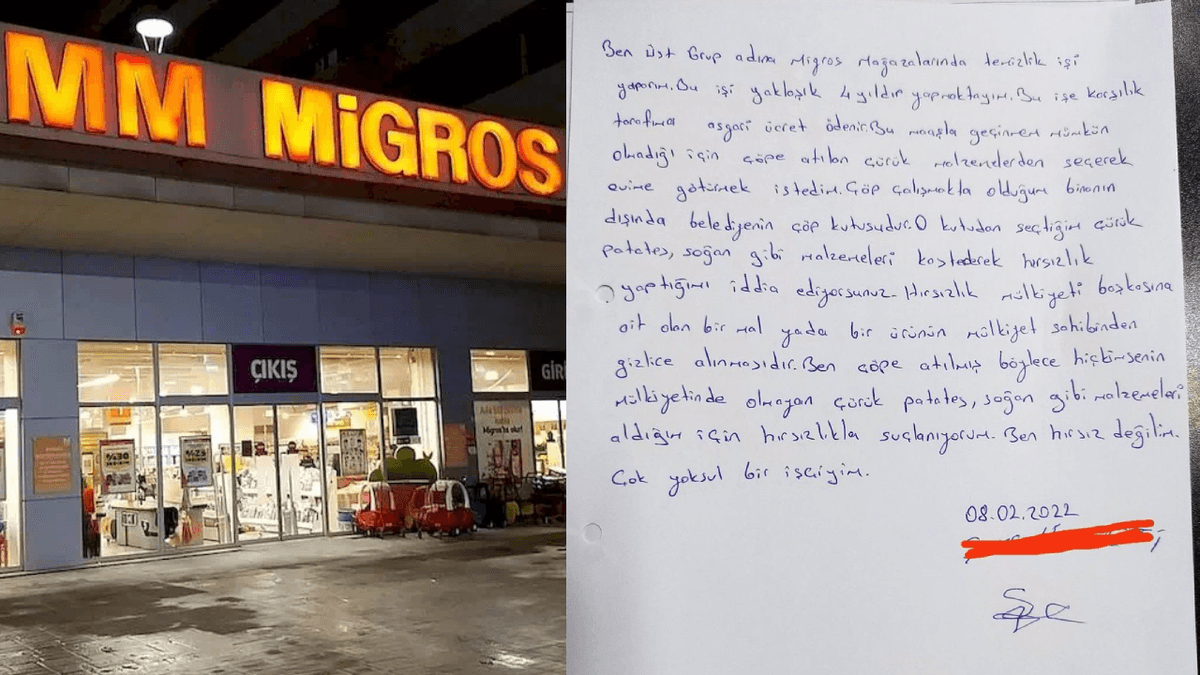 MM MiGROS
ÇIKIŞ
GİRİ
%30
%29
Migros'ta olur!
Ben Üst Grup adına Migros Mağazalarında temizlik işi
yaparım. Bu işi yaklaşık 4 yıldır yapmaktayım. Bu işe karşılık
tarafıma asgari ücret ödenir. Bu maaşla geçinmem mümkün
olmadığı için çöpe atılan çürük malzemelerden seçerek
evime götürmek istedim. Çöp çalışmakta olduğum binanın
dışında belediyenin çöp kutusudur. O kutudan seçtiğim çürük
patates, soğan gibi malzemeleri kastederek hırsızlık
yaptığımı iddia ediyorsunuz. Hırsızlık mülkiyeti başkasına
ait olan bir mal yada bir ürünün mülkiyet sahibinden
gizlice alınmasıdır. Ben çöpe atılmış böylece hiçkimsenin
mülkiyetinde olmayan çürük patates, soğan gibi malzemeleri
aldığım için hırsızlıkla suçlanıyorum. Ben hırsız değilim.
Çok yoksul bir işçiyim.
08.02.2022